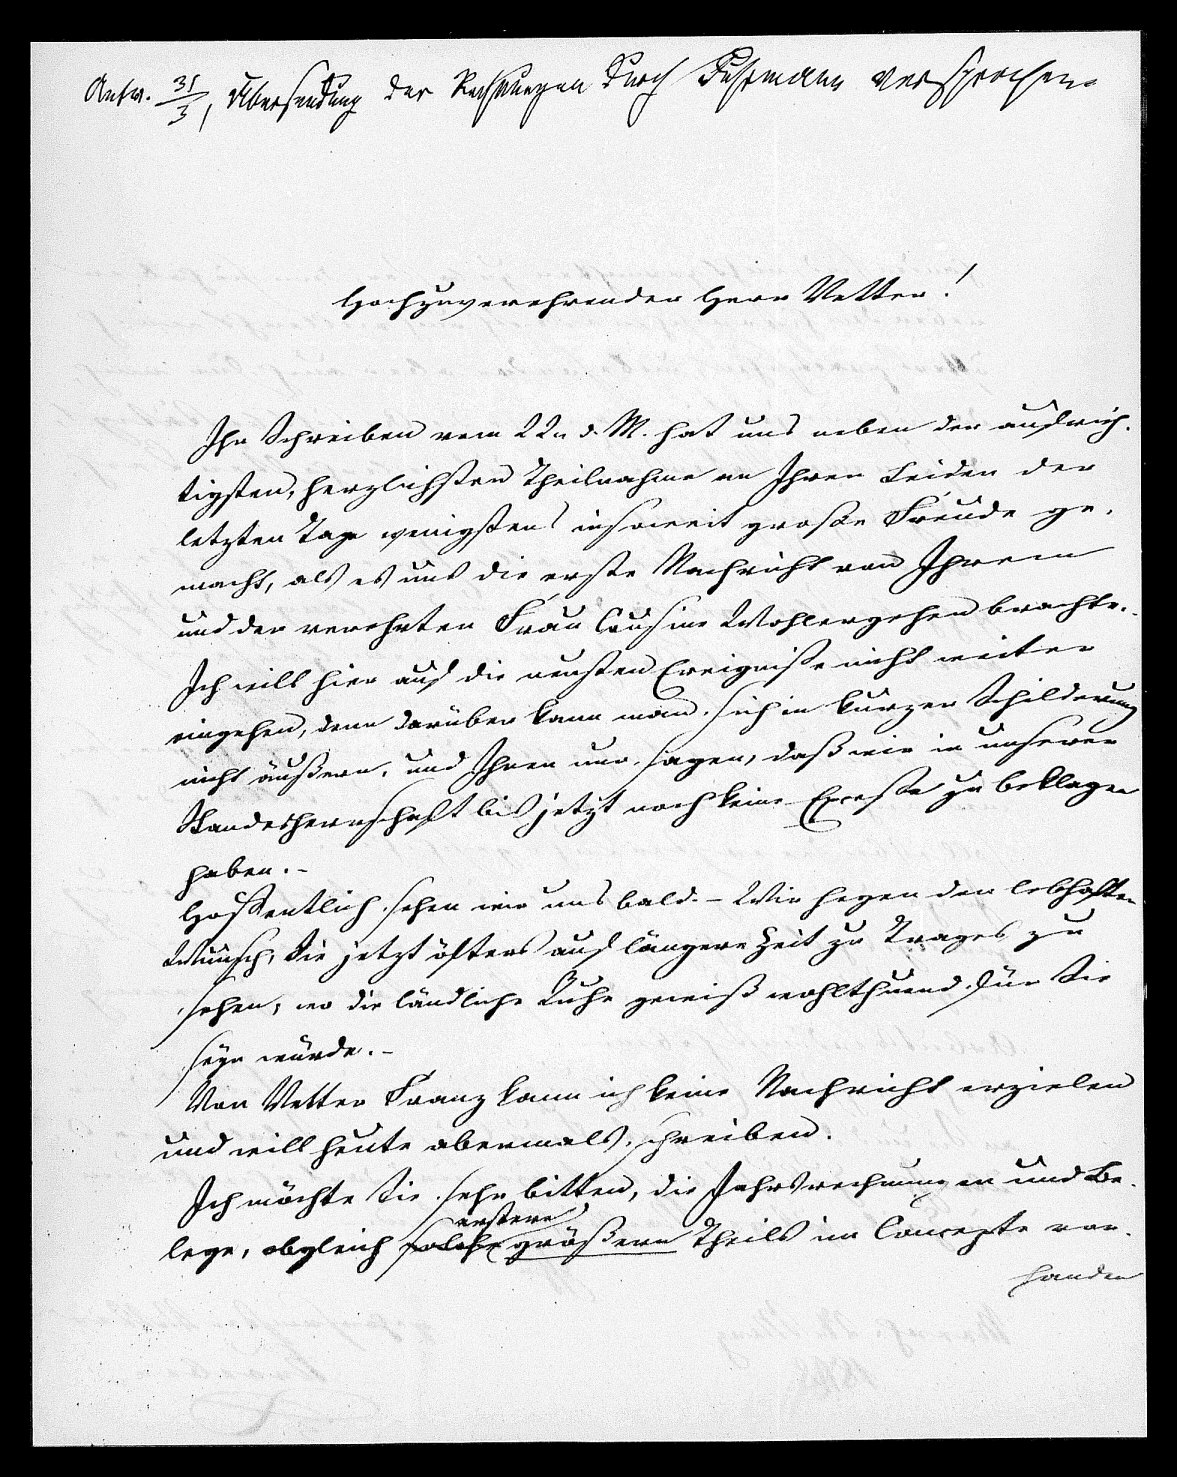 Antw. 31/3, Übersendung der Rechnungen durch Fuhrmann versprochen.
Hochzuverehrender Herr Vetter!
Ihr Schreiben vom 22n d. M. hat uns neben der aufrich-
tigsten, herzlichsten Theilnahme an Ihren Leiden der
letzten Tage wenigstens insoweit große Freude ge-
macht, als es uns die erste Nachricht von Ihrem
und der verehrten Frau Cousine Wohlergehen brachte.
Ich will hier auf die neusten Ereigniße nicht weiter
eingehen, denn darüber kann man sich in kurzer Schilderung
nicht äußern, und Ihnen nur sagen, daß wir in unserer
Standesherrschaft bis jetzt noch keine Exceße zu beklagen
haben. -
Hoffentlich sehen wir uns bald. - Wir hegen den lebhaften
Wunsch, Sie jetzt öfters auf längere Zeit zu Trages zu
sehen, wo die ländliche Ruhe gewiß wohlthuend für Sie
seyn würde. -
Von Vetter Franz kann ich keine Nachricht erzielen
und will heute abermals schreiben.
Ich möchte Sie sehr bitten, die Jahrsrechnungen und Be-
lege, obgleich solche erstere größern Theils im Concepte vor-
handen